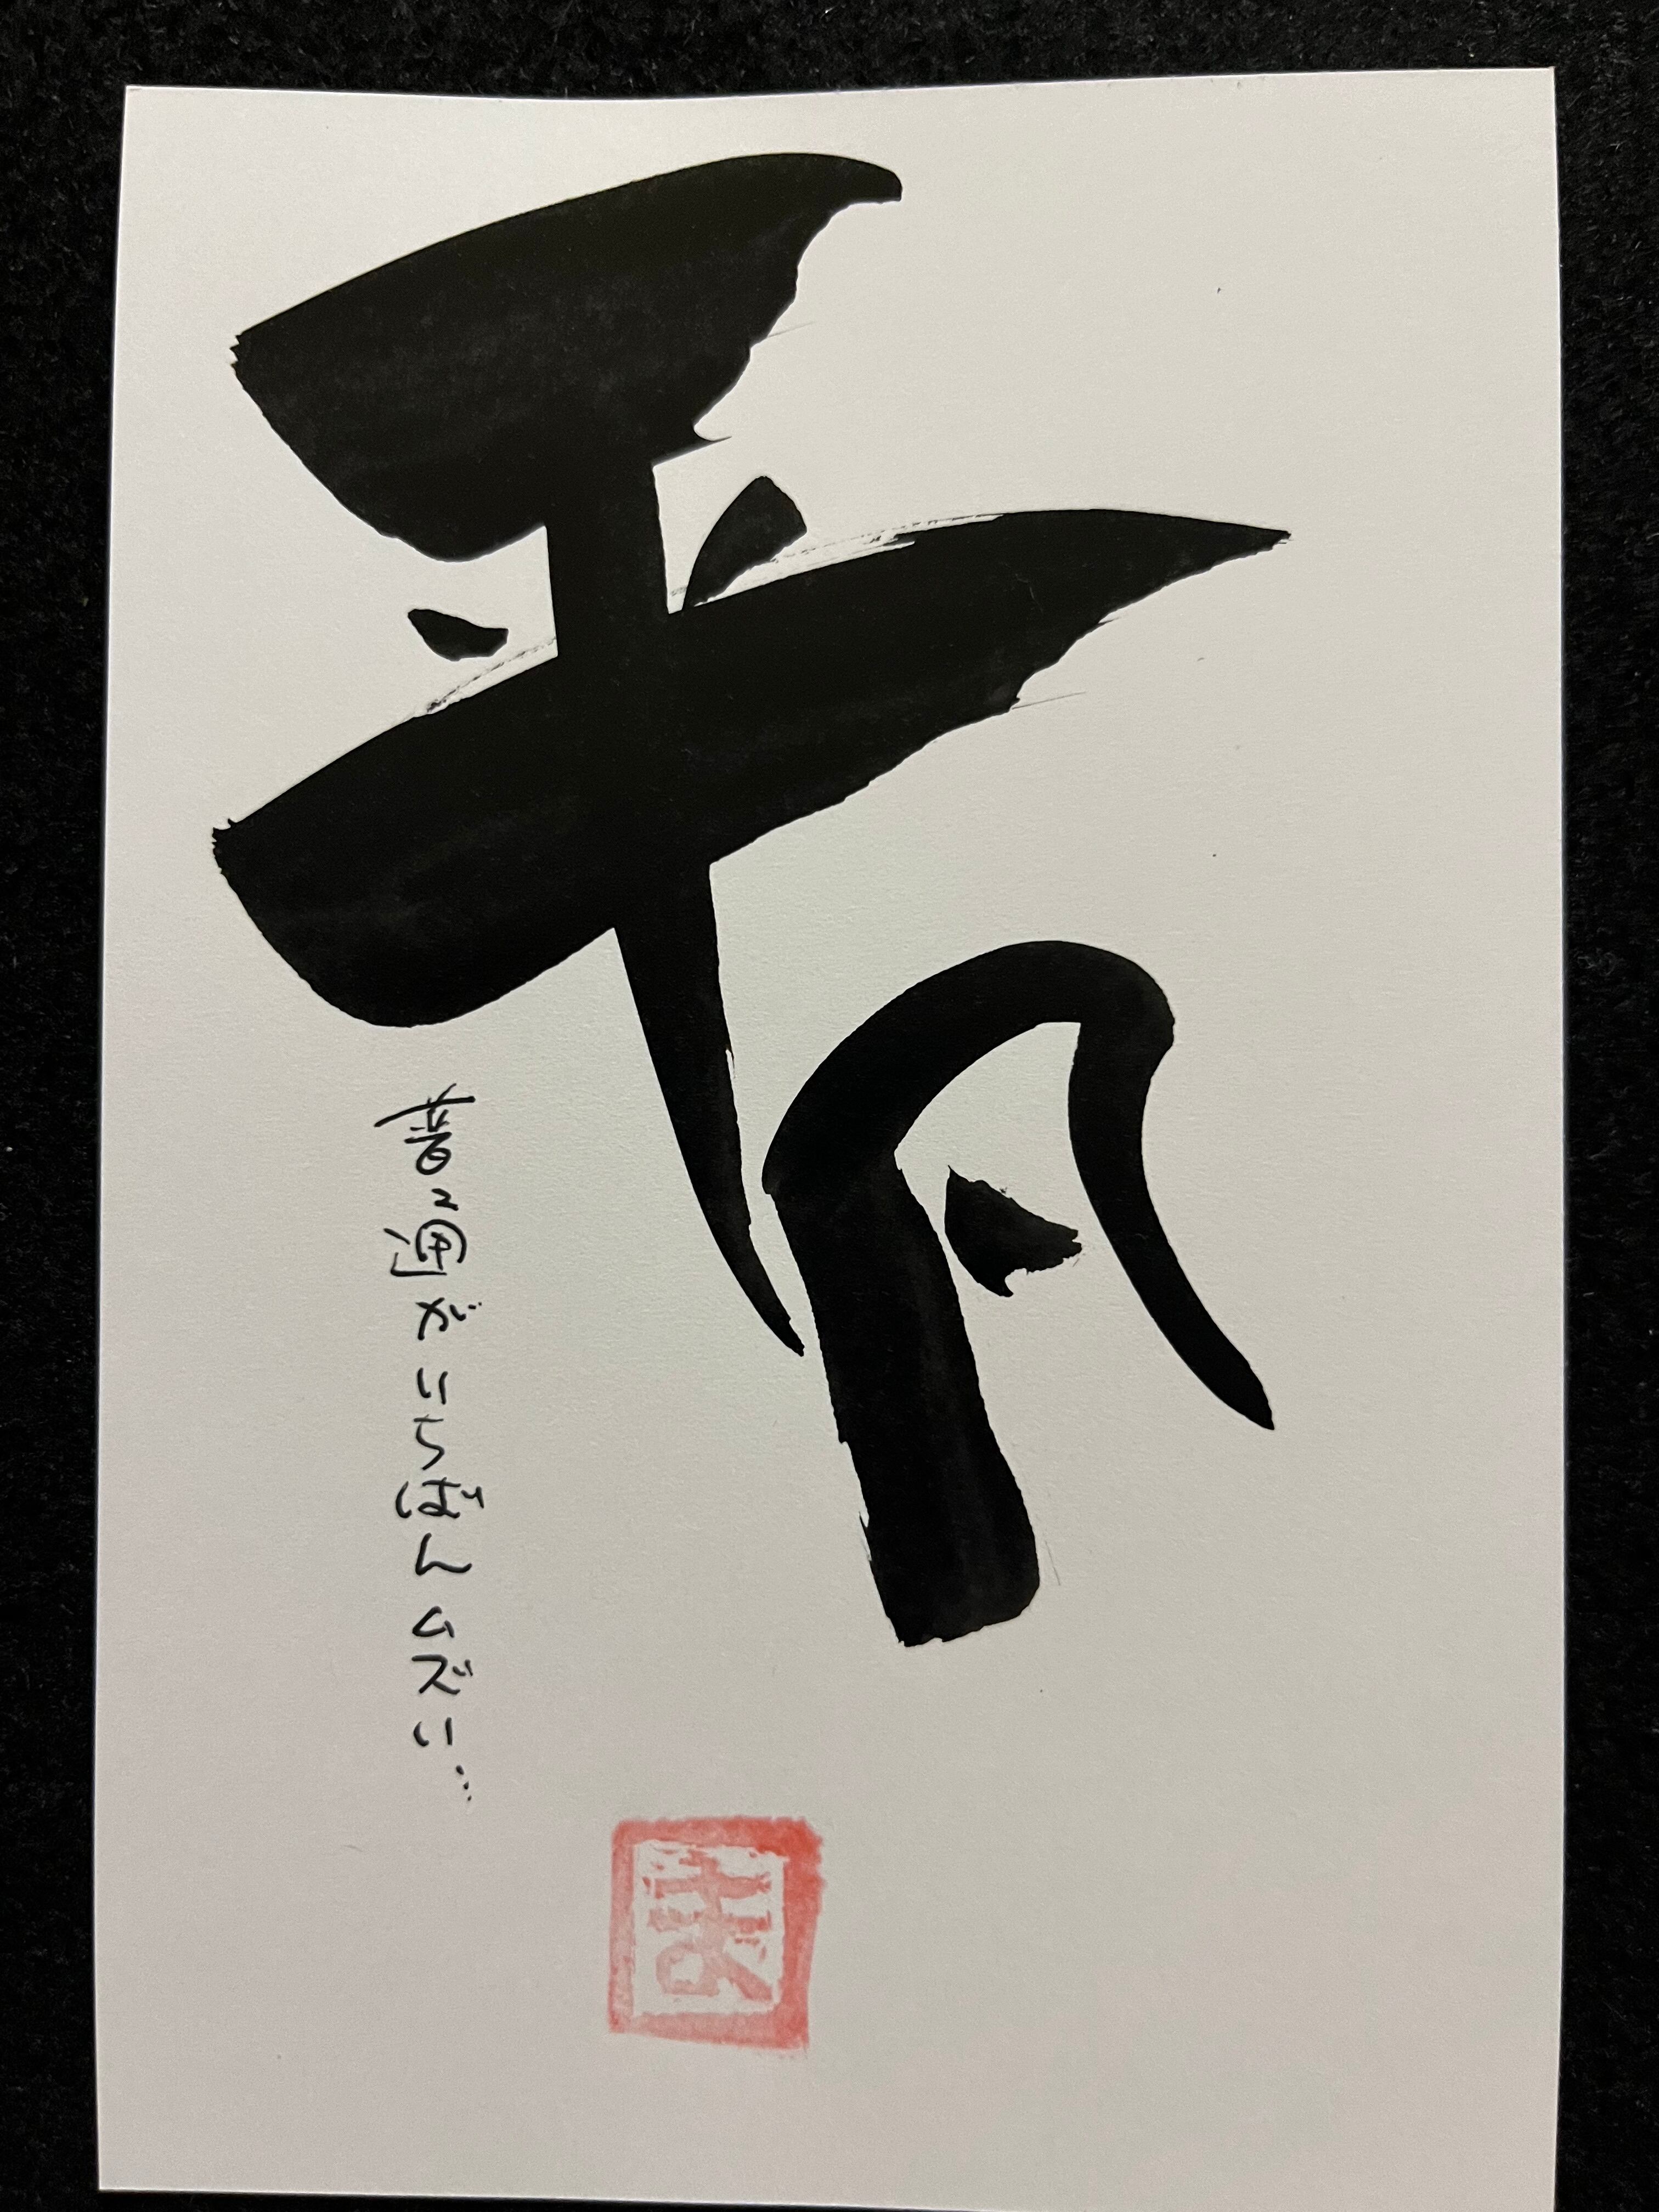 平凡
普通がいちばんムズい…
ま